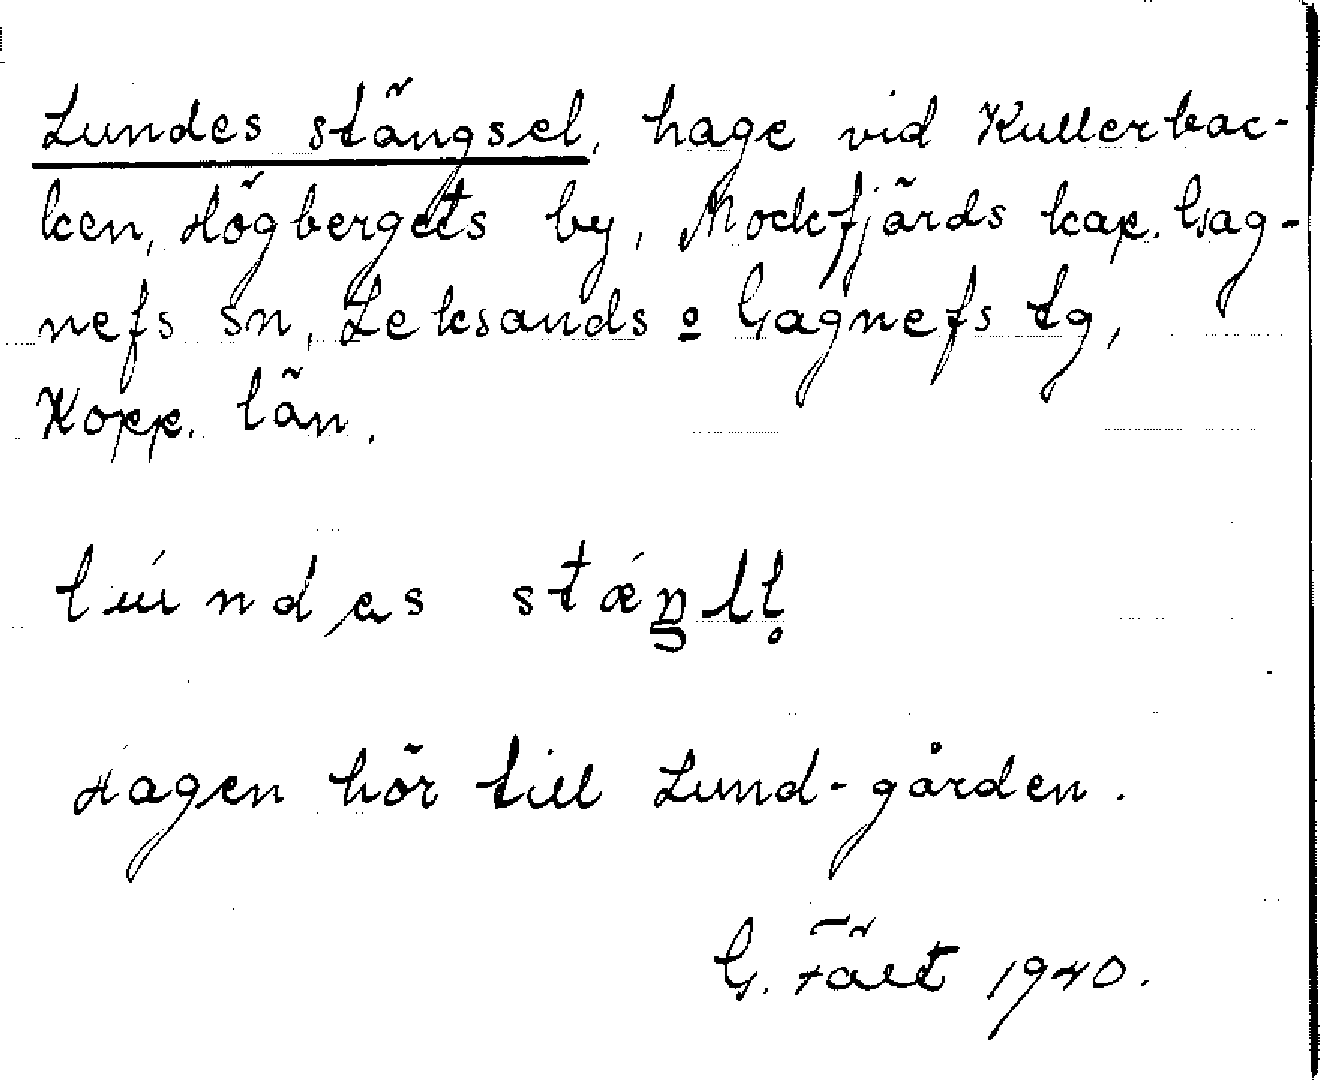 Lundes stängsel, hage vid Kullerbac-
ken, Högbergets by, Mockfjärds kap. Gag-
nefs sn, Leksands o Gagnefs tg,
Kopp. län.
stǽŋsl̥
Hagen hör till Lund-gården.
G. Fält 1940.